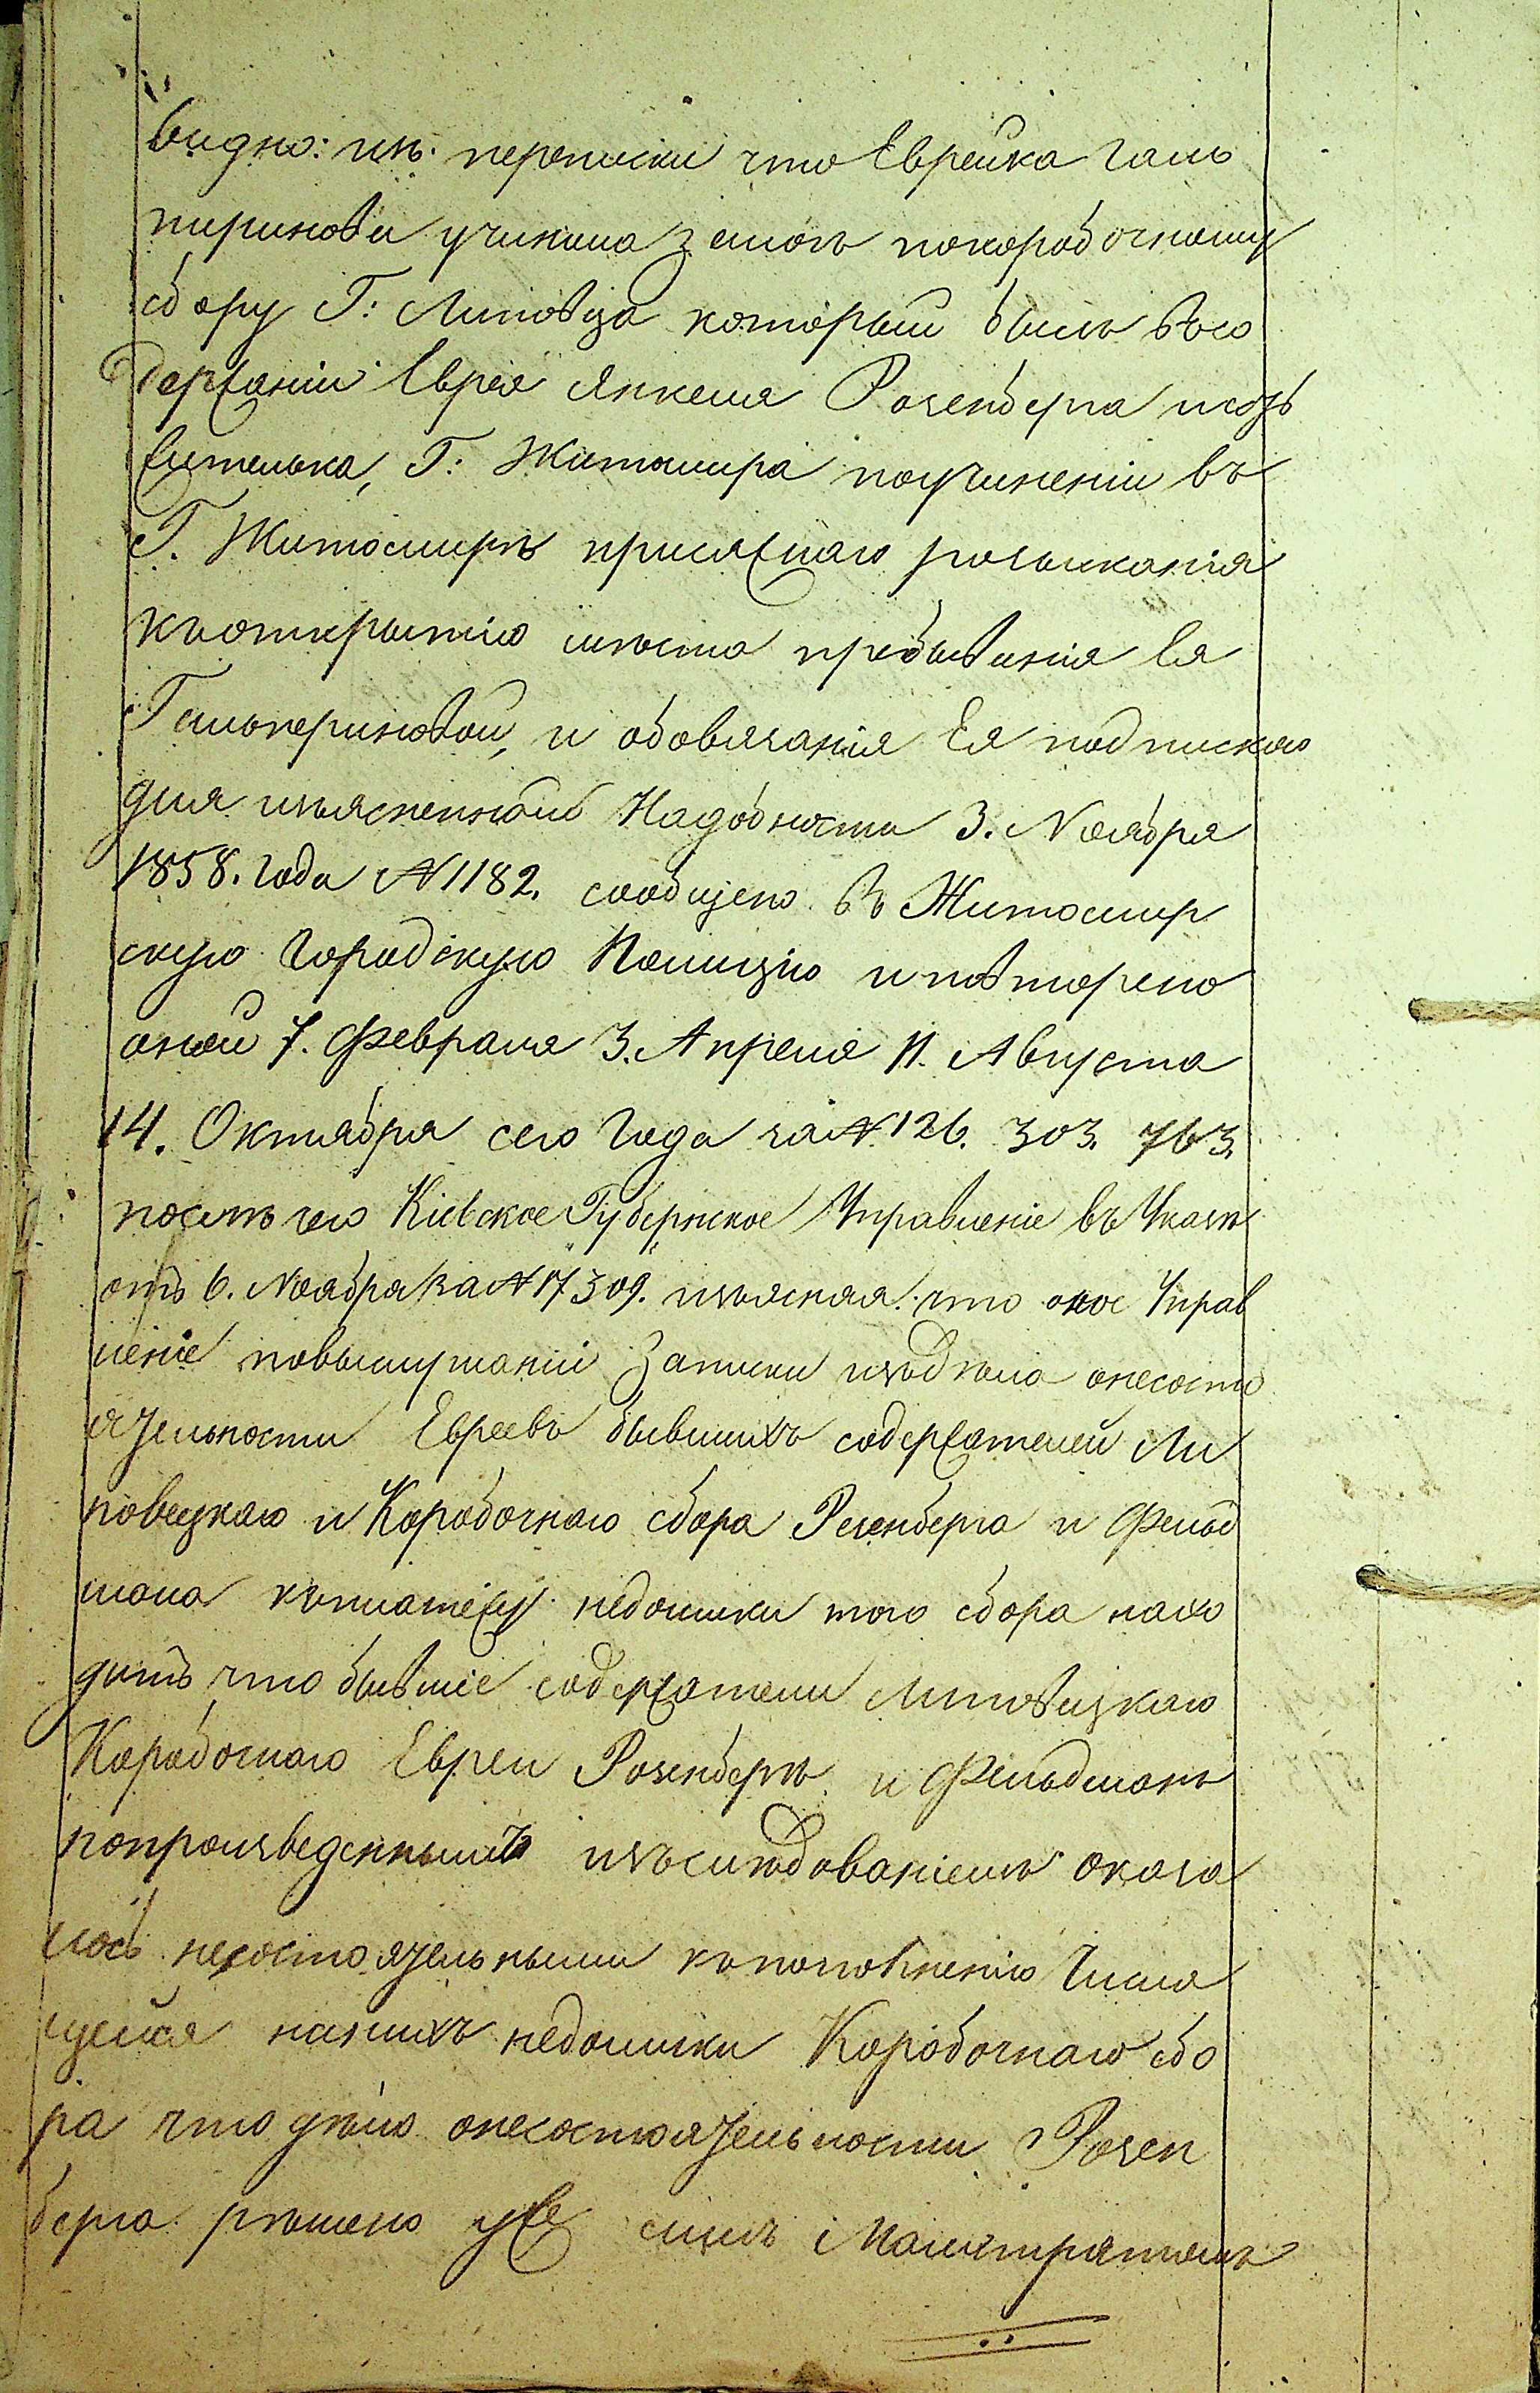 видно: изъ переписки что Еврейка Галь
перинова учинила залогъ покоробочному
сбору Г: Липовца который былъ въсо
держаніи Еврея Янкеля Розенберга
жителька, Г: Житомира поучиненіи въ
Г. Житомирѣ присяжнаго розысканія
къоткрытію мѣста пребыванія Ея
Гальпериновой, и обовязанія Ея подпискою
для изъясненной Надобности 3. Ноября
1858. года № 1182. сообщено въ Житомир
скую Городскую Полицію и повторено
оной 7. Февраля 3. Апреля 11. Августа
14. Октября сего Года за № 126. 303. 763.
послѣ чего Кіевское Губернское Управленіе въ Указѣ
отъ 6. Ноября за № 17309. изъясняя. что оное Управ
леніе повыслушаніи Записки изъдѣла онесосто
ятельности Евреевъ бывшихъ содержателей Ли
повецкаго и Коробочнаго сбора Розенберга и Фельд
мана къплатежу недоимки того сбора нахо
дитъ что бывшіе содержатели Липовецкаго
Коробочнаго Евреи Розенбергъ и Фельдманъ
попроизведеннымъ изъслѣдованіемъ оказа
лось несостоятельными къпополненію Числя
щейся нанихъ недоимки Коробочнаго сбо
ра что дѣло онесостоятельности Розен
берга рѣшено уже симъ Магистратомъ